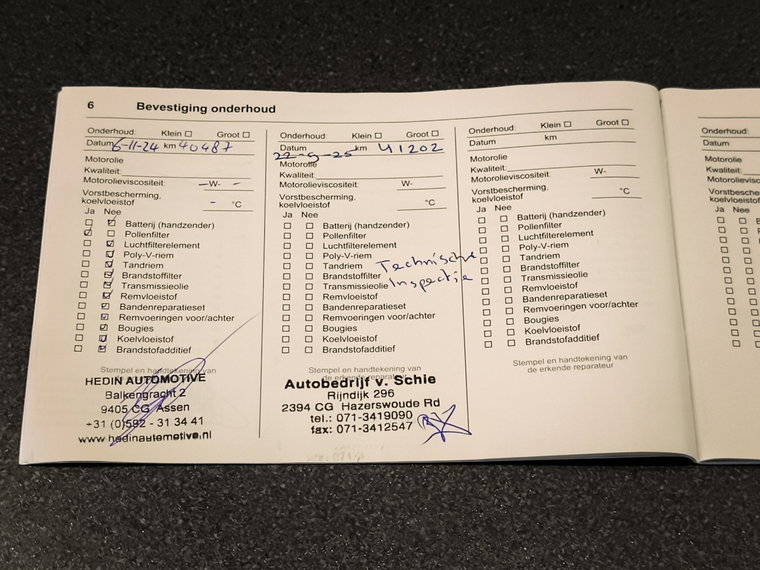 6 Bevestiging onderhoud
Onderhoud: Klein Groot
Datum 6-11-24 km 40487
Motorolie
Kwaliteit:
Motorolieviscositeit - W- -
Vorstbescherming,
koelvloeistof - °C
Ja Nee
Batterij (handzender)
Pollenfilter
Luchtfilterelement
Poly-V-riem
Tandriem
Brandstoffilter
Transmissieolie
Remvloeistof
Bandenreparatieset
Remvoeringen voor/achter
Bougies
Koelvloeistof
Brandstofadditief
Stempel en handtekening van
HEDIN AUTOMOTIVE
Balkengracht 2
9405 CG Assen
+31 (0)592 - 31 34 41
www.hedinautomotive.nl
Onderhoud: Klein Groot
Datum 22-9-25 km 41202
Motorolie
Kwaliteit:
Motorolieviscositeit: W-
Vorstbescherming,
koelvloeistof °C
Ja Nee
Batterij (handzender)
Pollenfilter
Luchtfilterelement
Poly-V-riem
Tandriem
Brandstoffilter
Transmissieolie
Remvloeistof
Bandenreparatieset
Remvoeringen voor/achter
Bougies
Koelvloeistof
Brandstofadditief
Technische
Inspectie
Stempel en handtekening van
de erkende reparateur
Autobedrijf v. Schie
Rijndijk 296
2394 CG Hazerswoude Rd
tel.: 071-3419090
fax: 071-3412547
Onderhoud: Klein Groot
Datum km
Motorolie
Kwaliteit:
Motorolieviscositeit: W-
Vorstbescherming,
koelvloeistof °C
Ja Nee
Batterij (handzender)
Pollenfilter
Luchtfilterelement
Poly-V-riem
Tandriem
Brandstoffilter
Transmissieolie
Remvloeistof
Bandenreparatieset
Remvoeringen voor/achter
Bougies
Koelvloeistof
Brandstofadditief
Stempel en handtekening van
de erkende reparateur
Onderhoud:
Datum
Motorolie
Kwaliteit:
Motorolievisc
Vorstbesche
koelvloeistof
Ja Nee